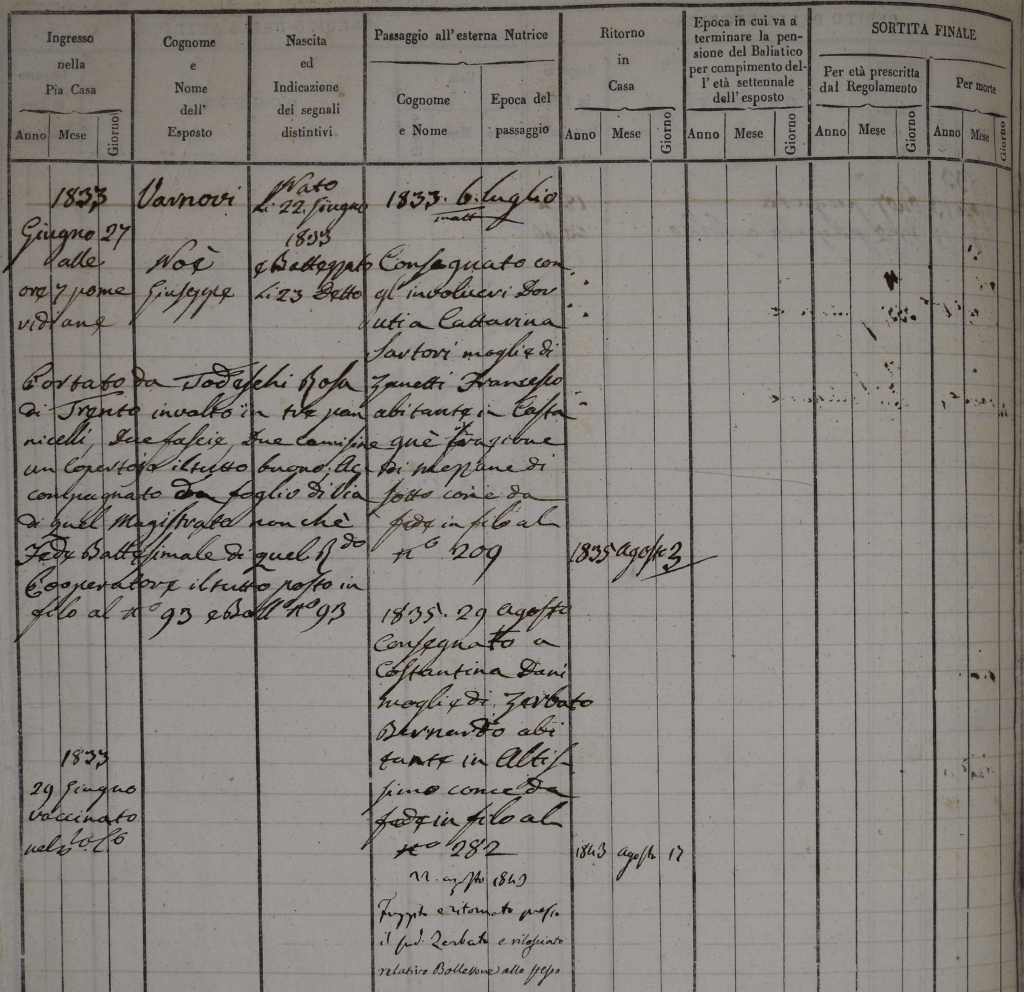 Ingresso
nella
Pia Casa
Anno Mese Giorno
Cognome
e
Nome
dell'
Esposto
Nascita
ed
Indicazione
dei segnali
distintivi
Passaggio all'esterna Nutrice
Cognome
e Nome
Epoca del
passaggio
Ritorno
in
Casa
Anno Mese Giorno
Epoca in cui va a
terminare la pen-
sione del Baliatico
per compimento del-
l'età settennale
dell'esposto
Anno Mese Giorno
SORTITA FINALE
Per età prescritta
dal Regolamento
Anno Mese Giorno
Per morte
Anno Mese Giorno
1833
Giugno 27
alle
ore 7 pome
ridiane
Varnovi
Noè
Giuseppe
Nato
li 22. Giugno
1833
e Battezzato
li 23 Detto
Portato da Todeschi Rosa
di Trento involto in tre pan
nicelli, Due fascie, Due camisine
un Copertojo il tutto buono; Ac-
compagnato da foglio di Via
di quel Magistrato non chè
Fede Battesimale di quel R.do
Cooperatore il tutto posto in
filo al n.o 93 e Boll.o n.o 93
1833
29 Giugno
vaccinato
1833. 6. luglio
Consegnato con
gl' involucri Dor
utia Cattarina
Sartori moglie di
Zanetti Francesco
abitante in Casta
guè frazione
di mezzane di
sotto come da
fede in filo al
n.o 209
1835 agosto 3
1835. 29 agosto
Consegnato a
Costantina Dani
moglie di Zerbato
Bernardo abi
tante in Altis
simo come da
fede in filo al
n.o 282
1843 agosto 17
22. agosto 1843
Fuggito e ritornato presso
il sud. Zerbato e rilasciato
relativo Bollettone allo stesso